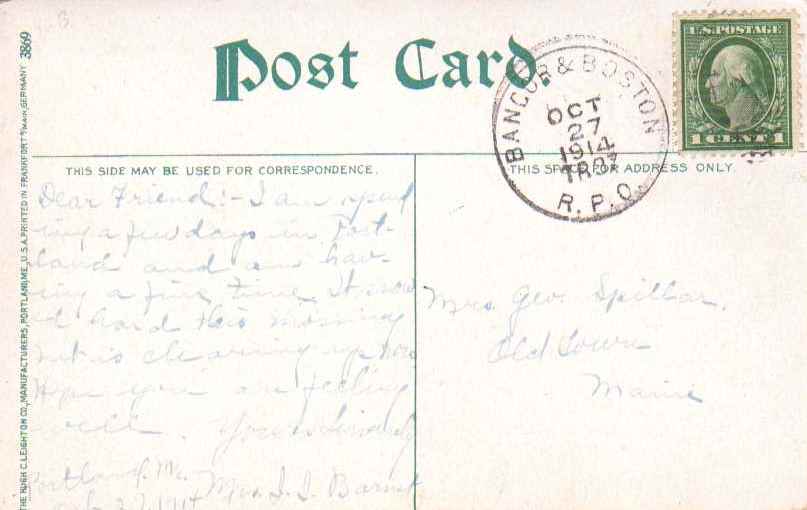 3869
THE HUGH C. LEIGHTON CO., MANUFACTURERS, PORTLAND, ME., U.S.A. PRINTED IN FRANKFORT MAIN, GERMANY
Post Card.
BANGOR & BOSTON
OCT
27
1914
R.P.O.
U.S. POSTAGE
1 CENT 1
THIS SIDE MAY BE USED FOR CORRESPONDENCE.
THIS SPACE FOR ADDRESS ONLY.
Dear Friend:- I am spend
ing a few days in Port-
land and am hav-
ing a fine time. It snow
d hard this morning
but is clearing up now
Hope you are feeling
well. Yours Sincerely
Portland, Me.
Oct. 27 1914 Mrs. I. I.
Mrs. Geo. Spillar.
Old Town
Maine